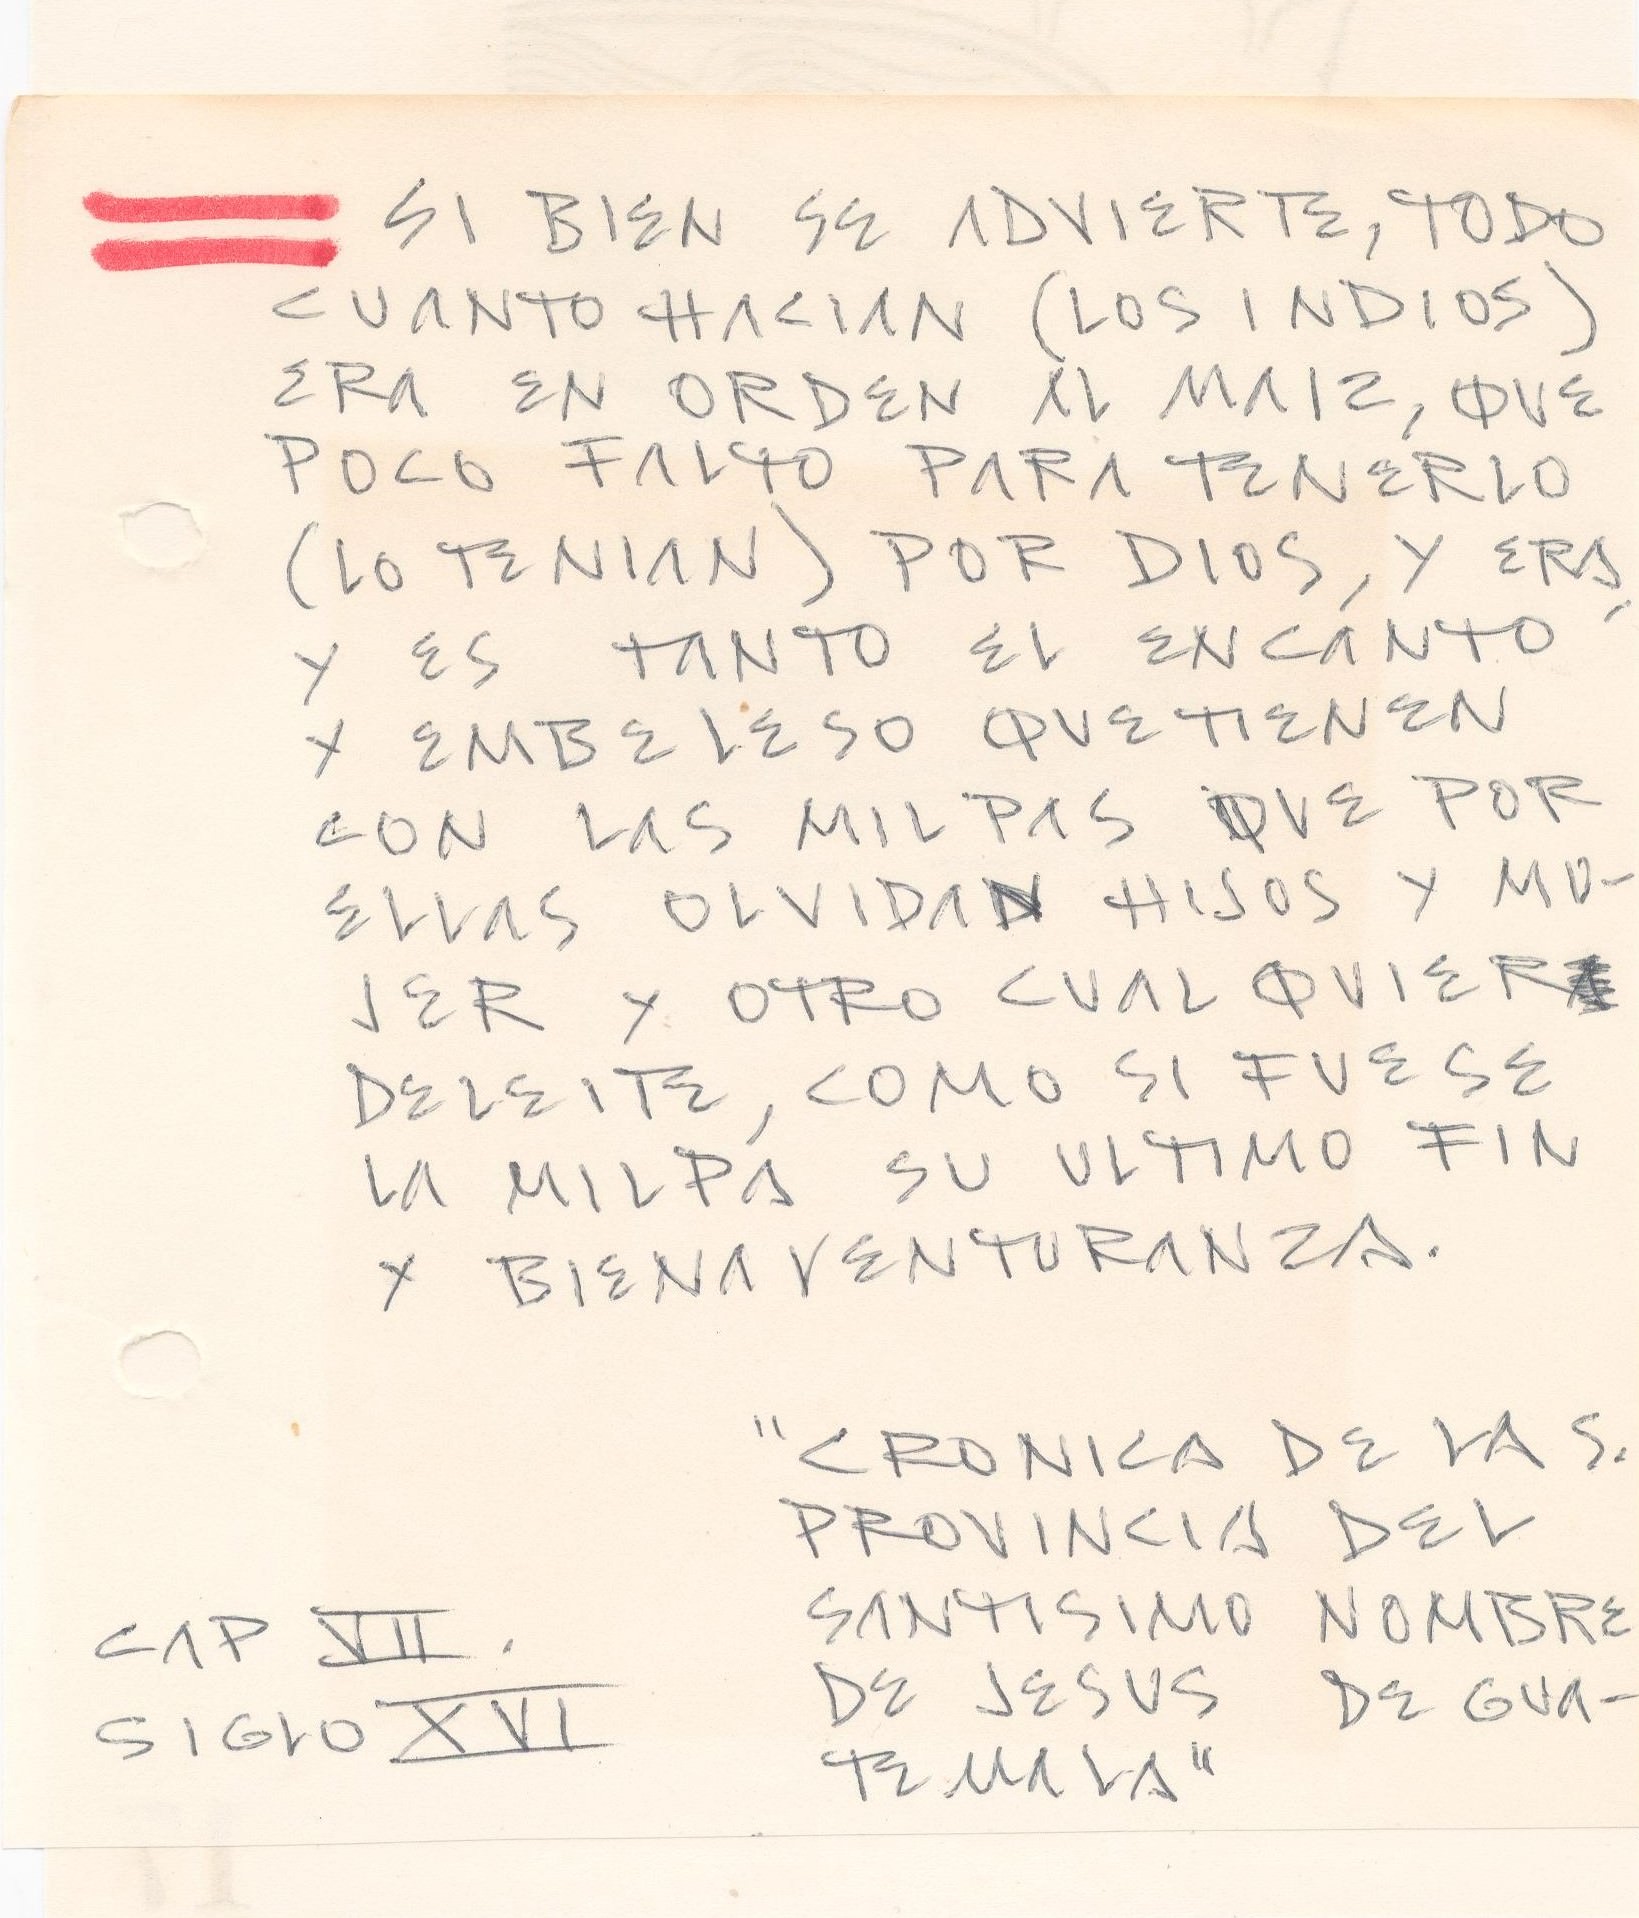 SI BIEN SE ADVIERTE, TODO
CUANTO HACIAN (LOS INDIOS)
ERA EN ORDEN AL MAIZ, QUE
POCO FALTO PARA TENERLO
(LO TENIAN) POR DIOS, Y ERA,
Y ES TANTO EL ENCANTO
Y EMBELESO QUE TIENEN
CON LAS MILPAS QUE POR
ELLAS OLVIDAN HIJOS Y MU-
JER Y OTRO CUALQUIER
DELEITE, COMO SI FUESE
LA MILPA SU ULTIMO FIN
Y BIENAVENTURANZA.
"CRONICA DE LA S.
PROVINCIA DEL
SANTISIMO NOMBRE
DE JESUS DE GUA-
TEMALA"
CAP VII.
SIGLO XVI